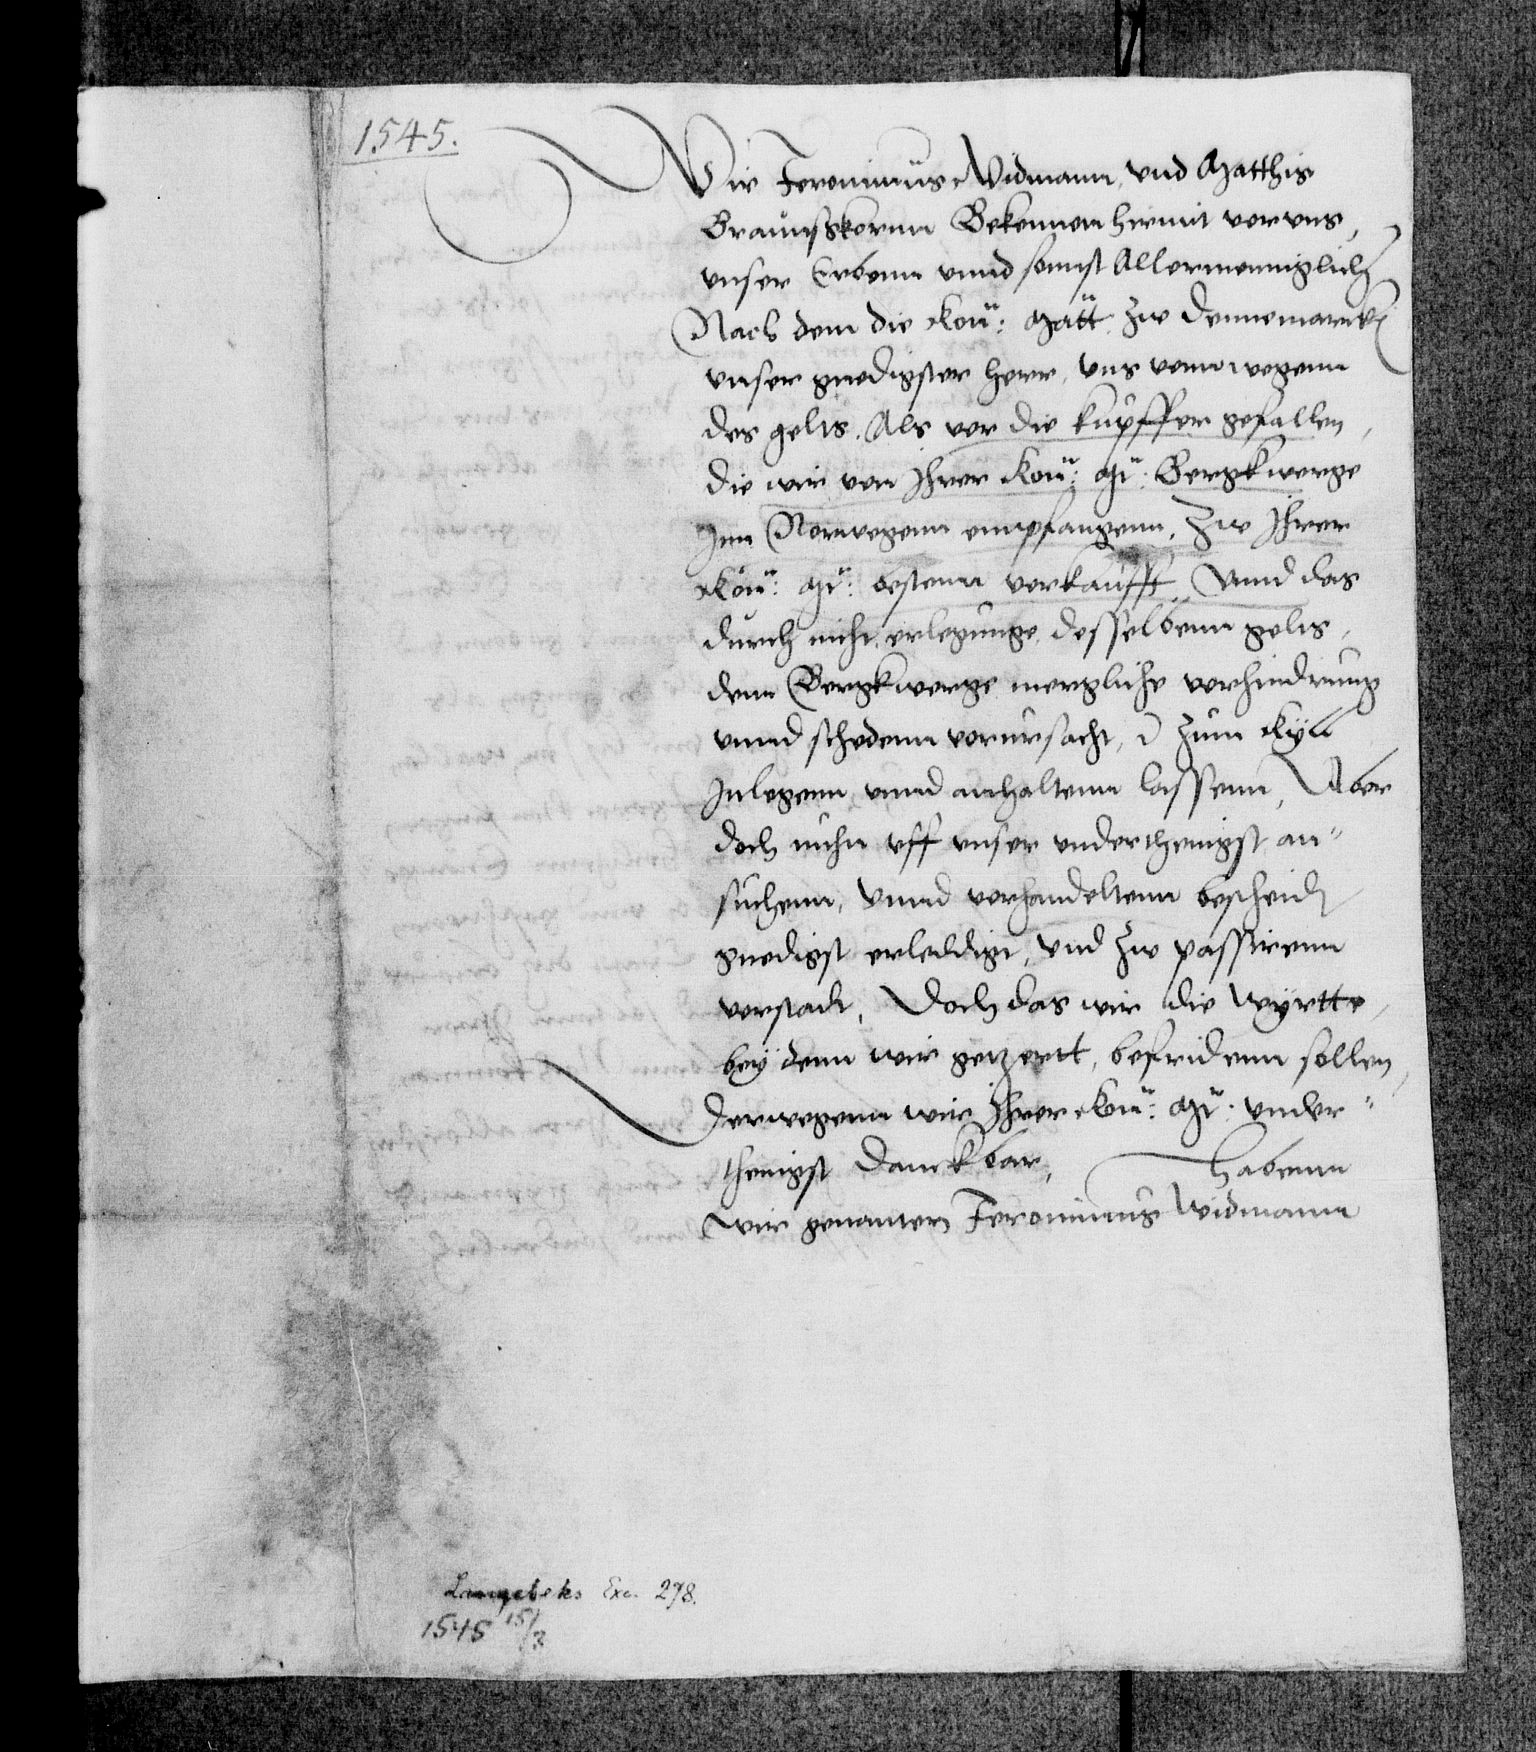 1545.
Wir Jeronimus Widmann, vnd Matthis
Braunskornn Bekennen hirmit vor vns,
vnser Erbenn vnnd sonnst Allermenniglich
Nach dem die Kön: Matt. zw Dennemarck
vnser gnedigster herr, vns vonn wegenn
des gelts. Als vor die kupffer gefallen,
die wir von Jhrer Kön: Mt: Bergkwerge
Inn Norwegenn emmpfangenn, Zw Jhrer
Kön: Mt: bestenn verkaufft, Vnnd das
durch nicht erlegunge desselbenn gelts,
dem Bergkwerge mergliche vorhindrung
vnnd schedenn vorursacht, zum Kyll
Inlegenn vnnd anhaltenn lassenn, Aber
doch nuhn vff vnser vnderthenigst an-
suchenn, Vnnd vorhandeltenn bescheid
gnedigst erleddigt, vnd zw passirenn
verstadt, Doch das wir die Wyrtte,
bey denn wir getzertt, befridenn sollen,
Derwegenn wir Jhrer Kön: Mt: vnder-
thenigst Danckbar, Habenn
wir genanten Jeronimus Widmann
Langebeks Exc. 278.
1545 15/3